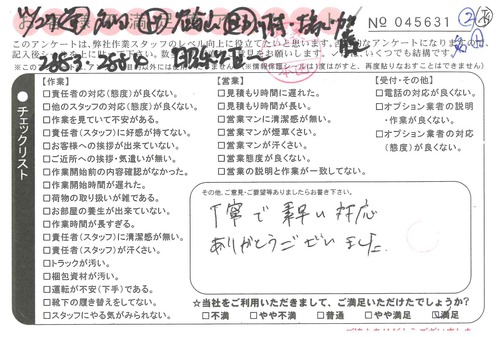 No 045631
このアンケートは、弊社作業スタッフのレベル向上に役立てたいと思います。
チェックリスト
【作業】
□責任者の対応(態度)が良くない。
□他のスタッフの対応(態度)が良くない。
□作業を見ていて不安がある。
□責任者(スタッフ)に好感が持てない。
□お客様への挨拶が出来ていない。
□ご近所への挨拶・気遣いが無い。
□作業開始前の内容確認がなかった。
□作業開始時間が遅れた。
□荷物の取り扱いが雑である。
□お部屋の養生が出来ていない。
□作業時間が長すぎる。
□責任者(スタッフ)に清潔感が無い。
□責任者(スタッフ)が汗くさい。
□トラックが汚い。
□梱包資材が汚い。
□運転が不安(下手)である。
□靴下の履き替えをしてない。
□スタッフにやる気がみられない。
【営業】
□見積もり時間に遅れた。
□見積もり時間が長い。
□営業マンに清潔感が無い。
□営業マンが煙草くさい。
□営業マンが汗くさい。
□営業態度が良くない。
□営業の説明と作業が一致してない。
【受付・その他】
□電話の対応が良くない。
□オプション業者の説明
・作業が良くない。
□オプション業者の対応
(態度)が良くない。
その他、ご意見・ご要望等ありましたらお書き下さい。
丁寧で素早い対応
ありがとうございました。
☆当社をご利用いただきまして、ご満足いただけたでしょうか?
□不満 □やや不満 □普通 □やや満足 ☑満足